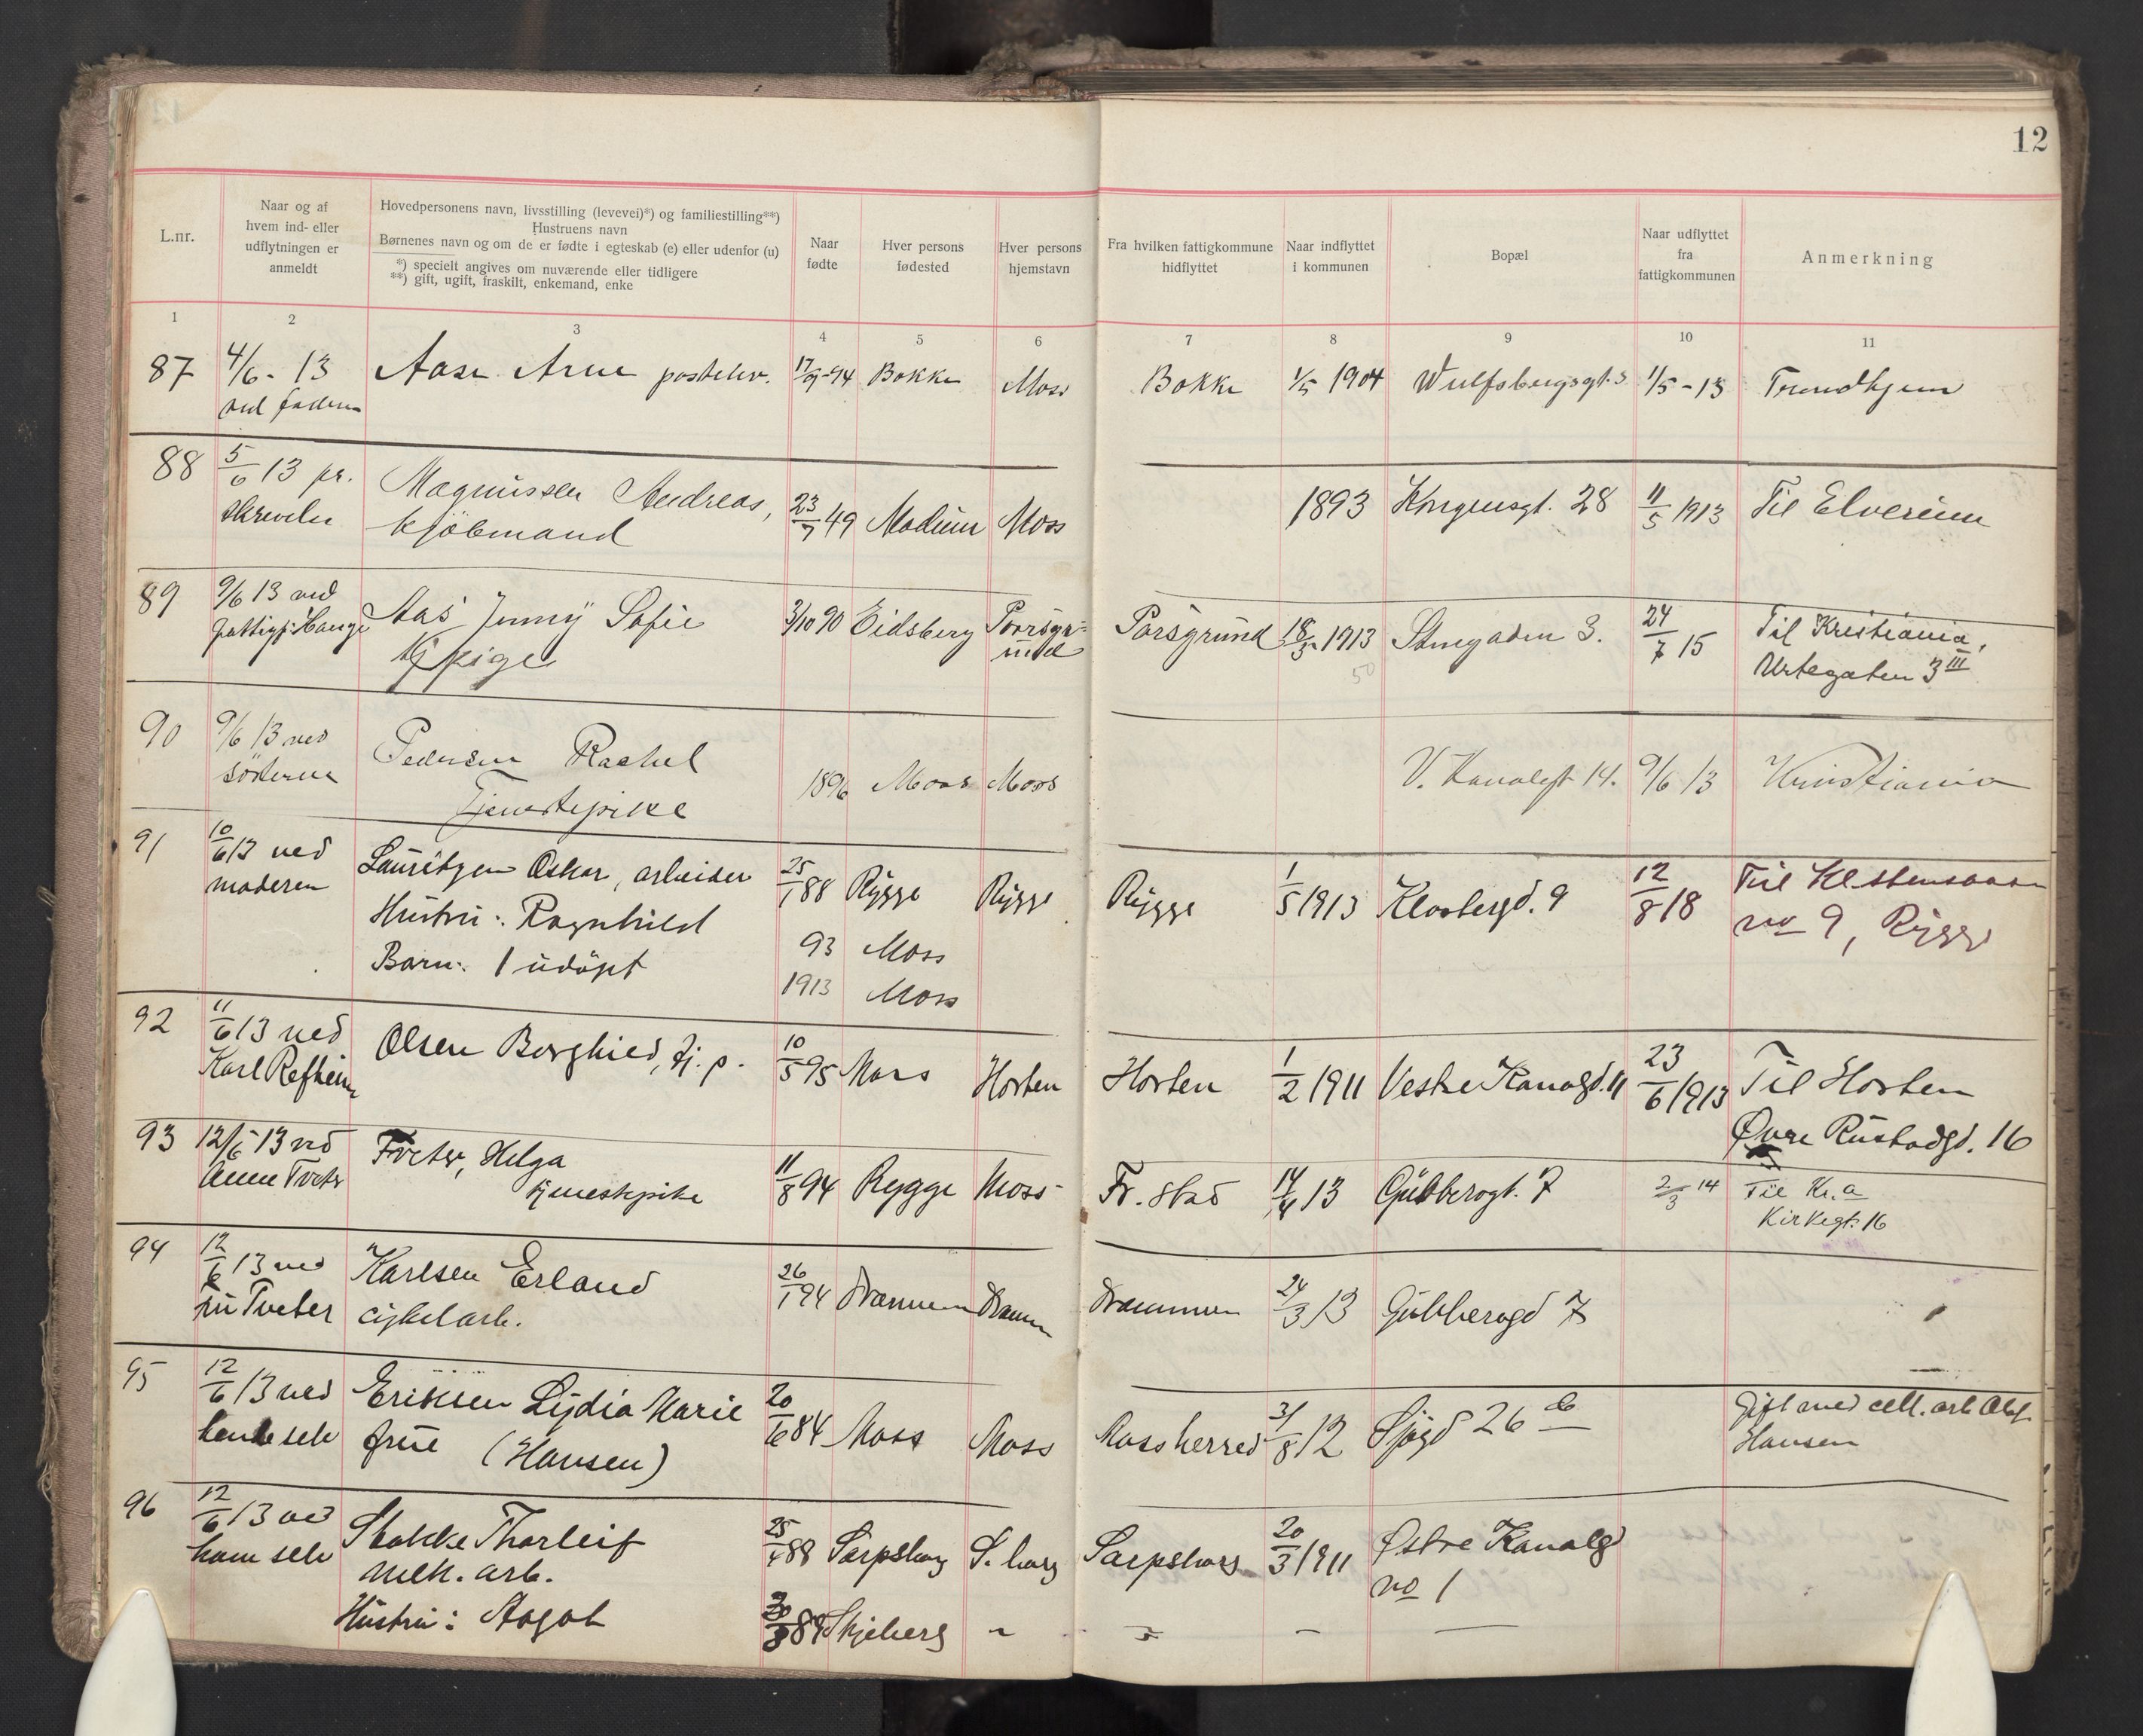 12
L.nr.
Naar og af
hvem ind- eller
udflytningen er
anmeldt
Hovedpersonens navn, livsstilling (levevei)*) og familiestilling**)
Hustruens navn
Børnenes navn og om de er fødte i egteskab (e) eller udenfor (u)
*) specielt angives om nuværende eller tidligere
**) gift, ugift, fraskilt, enkemand, enke
Naar
fødte
Hver persons
fødested
Hver persons
hjemstavn
Fra hvilken fattigkommune
hidflyttet
Naar indflyttet
i kommunen
Bopæl
Naar udflyttet
fra
fattigkommunen
Anmerkning
1 2 3 4 5 6 7 8 9 10 11
87 4/6 - 13 Aase Arne postelev. 17/9-94 Bakke Moss Bakke 1/5 1904 Wulfsbergsgt. 1/5-13 Trondhjem
ved faderen
88 5/6 13 pr. Magnussen Andreas, 23/7 49 Modum Moss 1893 Kongensgt. 28 11/5 1913 Til Elverum
skrivelse kjöbmand
89 9/6 13 ved Aas Jenny Sofie 3/10 90 Eidsberg Porsgr- Porsgrund 18/3 1913 Storgaden 3. 24/7 15 Til Kristiania,
pige und 50 Urtegaten 3 III
90 9/6 13 ved Pedersen Rachel 1896 Moss Moss V. Kanalgt 14. 9/6 13 Kristiania
sösteren Tjenestepike
91 10/6 13 ved Lauritzen Oskar, arbeider 25/1 88 Rygge Rygge Rygge 1/5 1913 Klostergd. 9 12/8 18 Til
moderen Hustru: Ragnhild 93 Moss no 9, Rygge
Barn: 1 udöpt 1913 Moss
92 11/6 13 ved Olsen Borghild, tj. p. 10/5 95 Moss Horten Horten 1/2 1911 Vestre Kanalgd. 11 23/6 1913 Til Horten
Karl Refheim Øvre Rustadgd. 16
93 12/6 13 ved Tveter, Helga 11/8 94 Rygge Moss Fr. stad 14/4 13 Gubberogt. 7 2/3 14 Til Kr.a
Anne Tveter tjenestepike Kirkegt. 16
94 12/6 13 ved Karlsen Erland 26/1 94 Drammen Dramm Drammen 24/3 13 Gubberogd 7
fru Tveter cykelarb.
95 12/6 13 ved Eriksen Lydia Marie 20/6 84 Moss Moss Moss herred 31/8 12 Sjøgd 26 b Gift med cell. arb Olaf
hende selv frue (Hansen) Hansen
96 12/6 13 ved Stokke Thorleif 25/4 88 Sarpsborg S. borg Sarpsborg 20/3 1911 Østre Kanalgd
ham selv mek. arb. no 1
Hustru: Aagot 89 Skjeberg - - - -